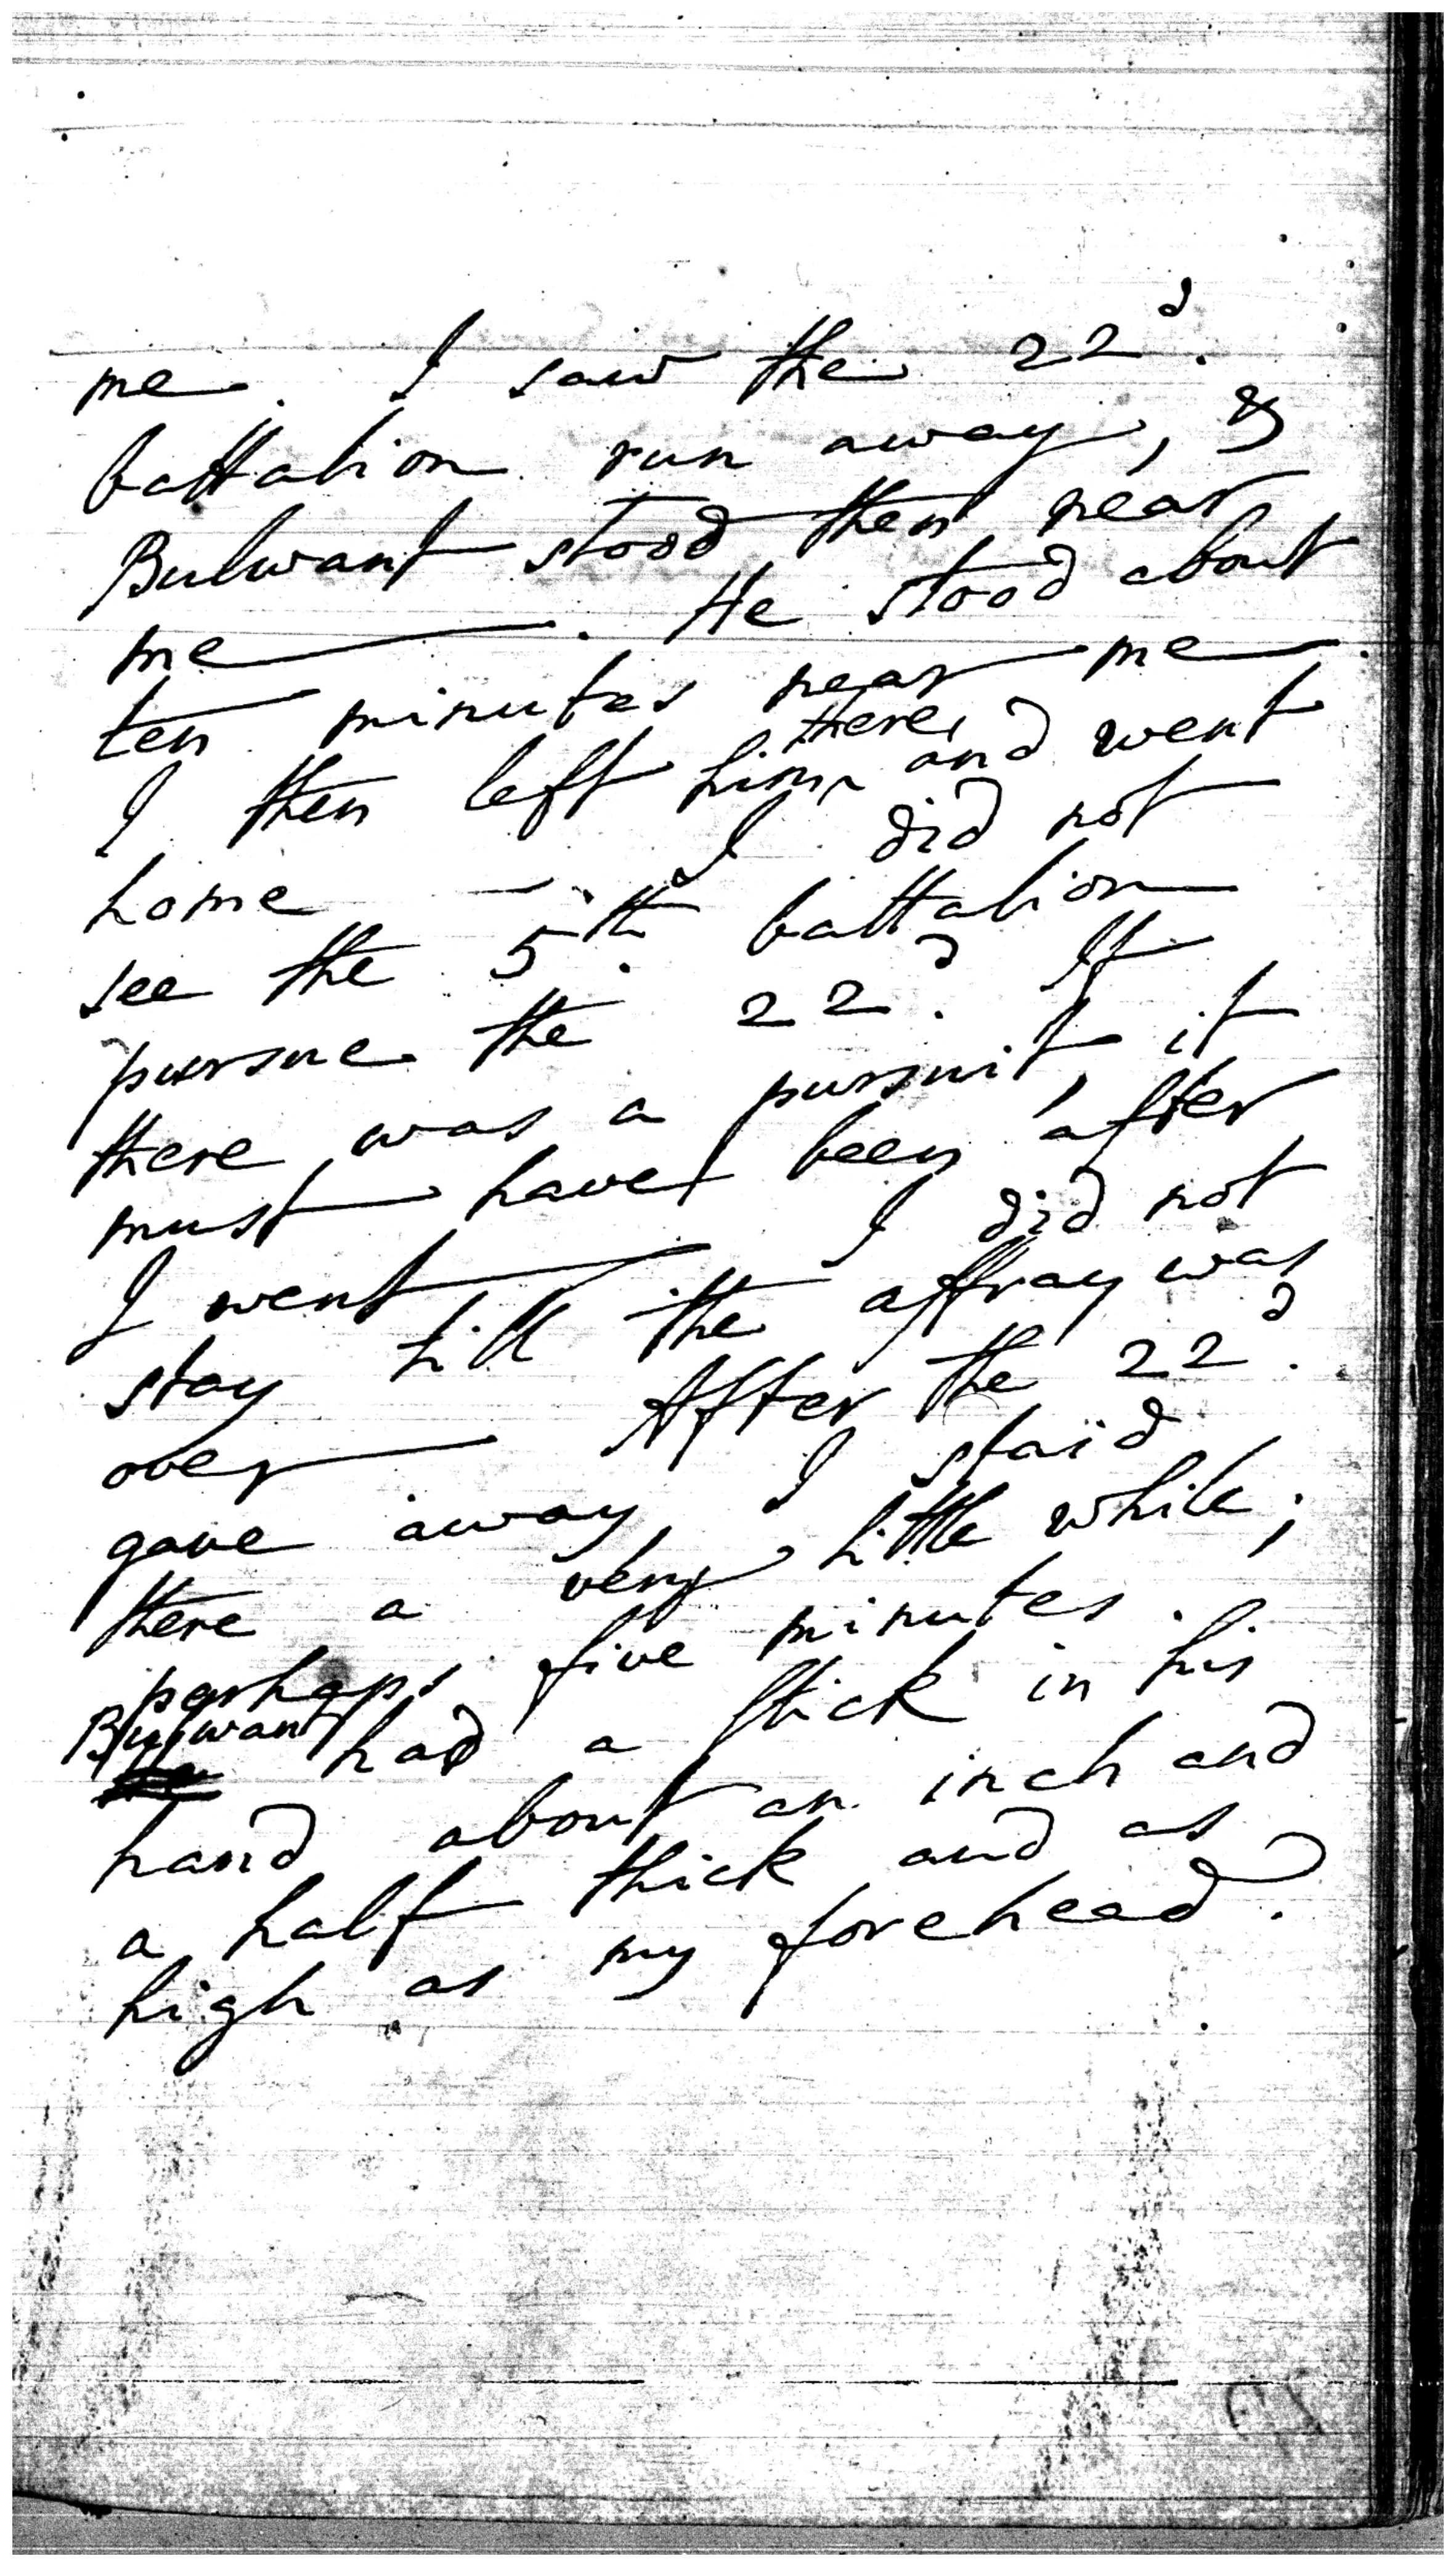 me. I saw the 22d.
battalion run away, &
Bulwant stood then near
me —. He stood about
ten minutes near me.
there,
I then left him and went
home — I did not
see the 5th. battalion
pursue the 22d. If
there was a pursuit, it
must have been after
I went — I did not
stay till the affray was
over — After the 22d.
gave away, I staid
there a very little while;
perhaps five minutes.
Bulwant
had a stick in his
hand about an inch and
a half thick and as
high as my forehead.